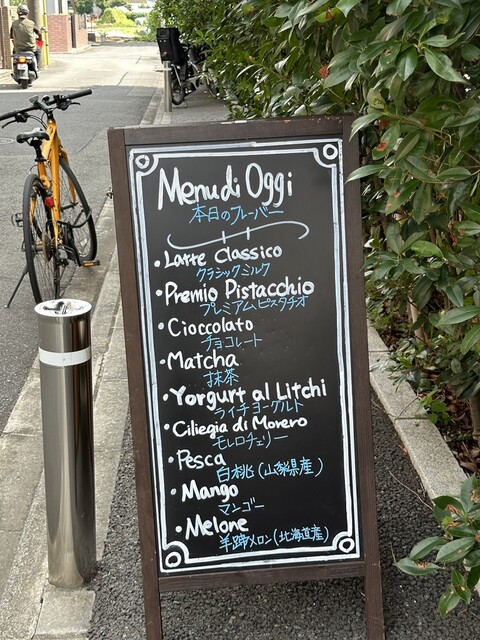 Menu di Oggi
本日のフレーバー
・Latte Classico
クラシックミルク
・Premio Pistacchio
プレミアムピスタチオ
・Cioccolato
チョコレート
・Matcha
抹茶
・Yorgurt al Litchi
ライチヨーグルト
・Ciliegia di Morero
モレロチェリー
・Pesca
白桃(山梨県産)
・Mango
マンゴー
・Melone
羊蹄メロン(北海道産)